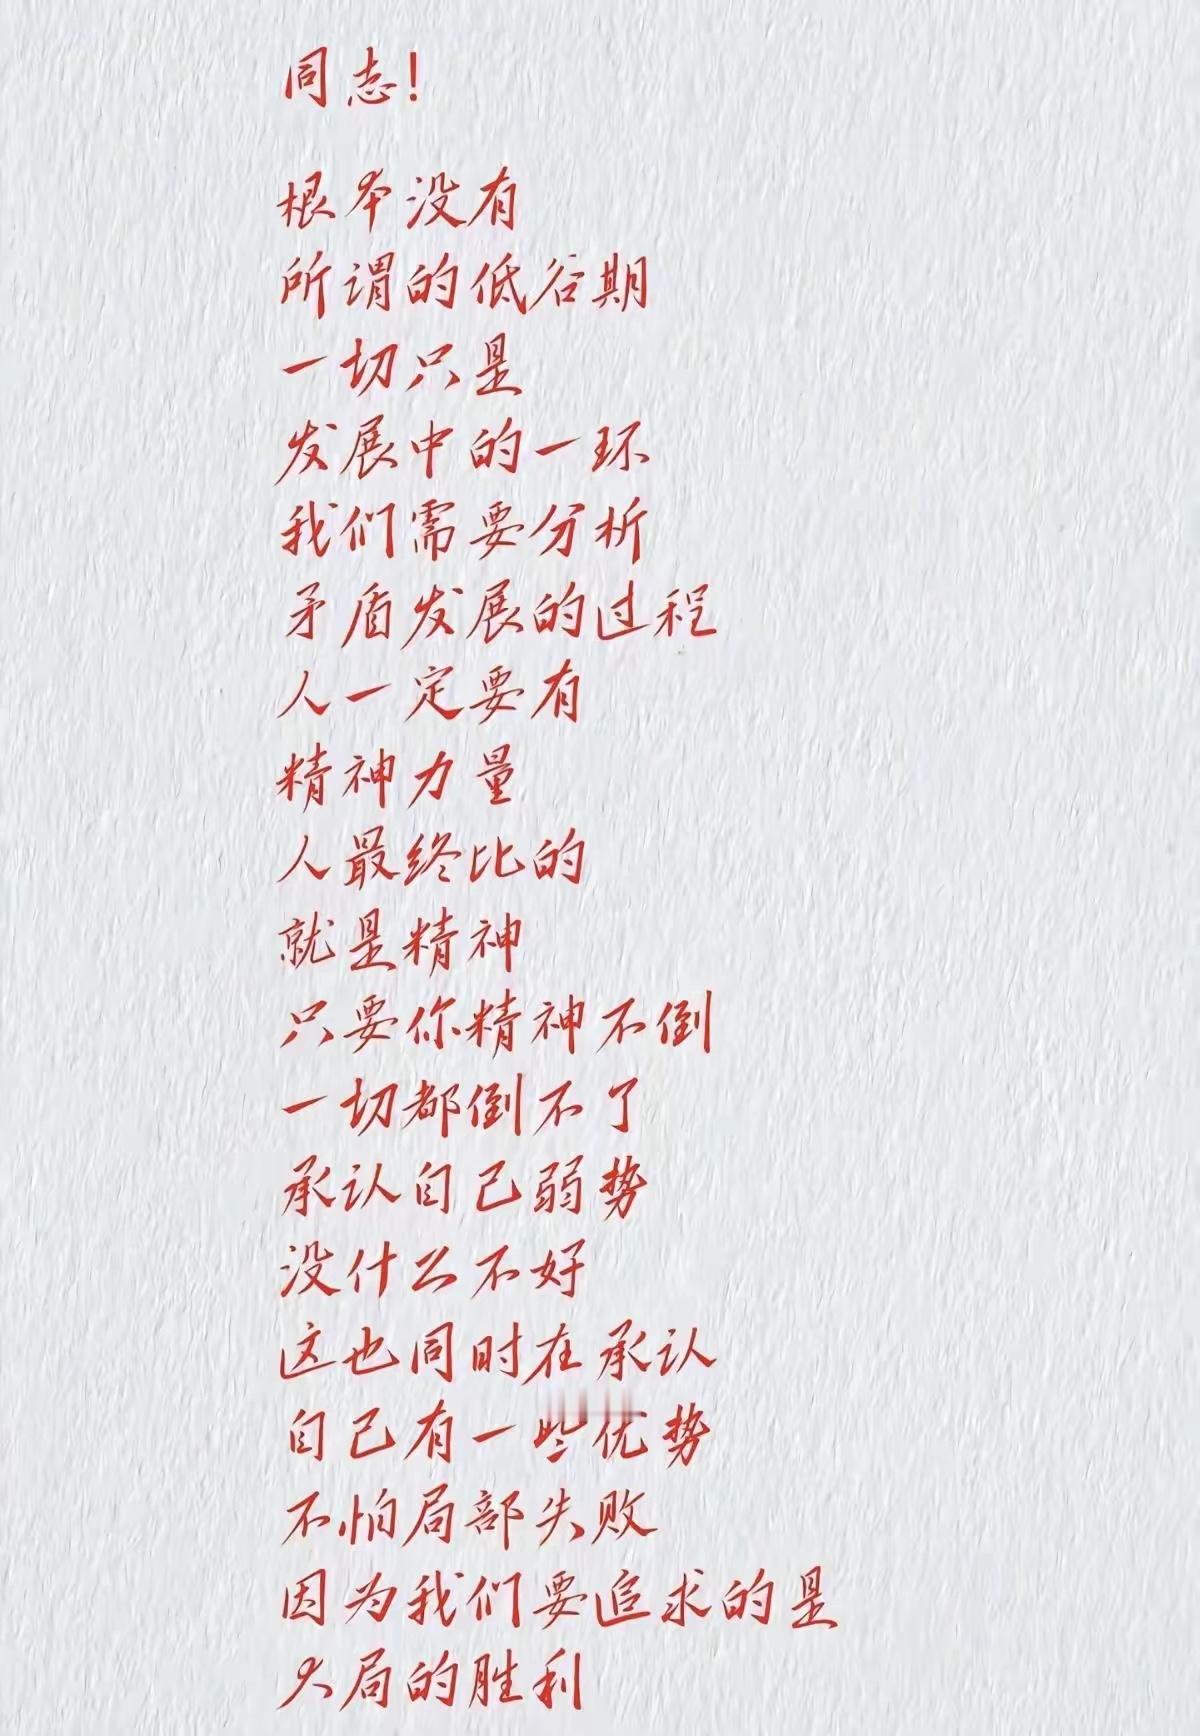 同志！
根本没有
所谓的低谷期
一切只是
发展中的一环
我们需要分析
矛盾发展的过程
人一定要有
精神力量
人最终比的
就是精神
只要你精神不倒
一切都倒不了
承认自己弱势
没什么不好
这也同时在承认
自己有一些优势
不怕局部失败
因为我们要追求的是
大局的胜利